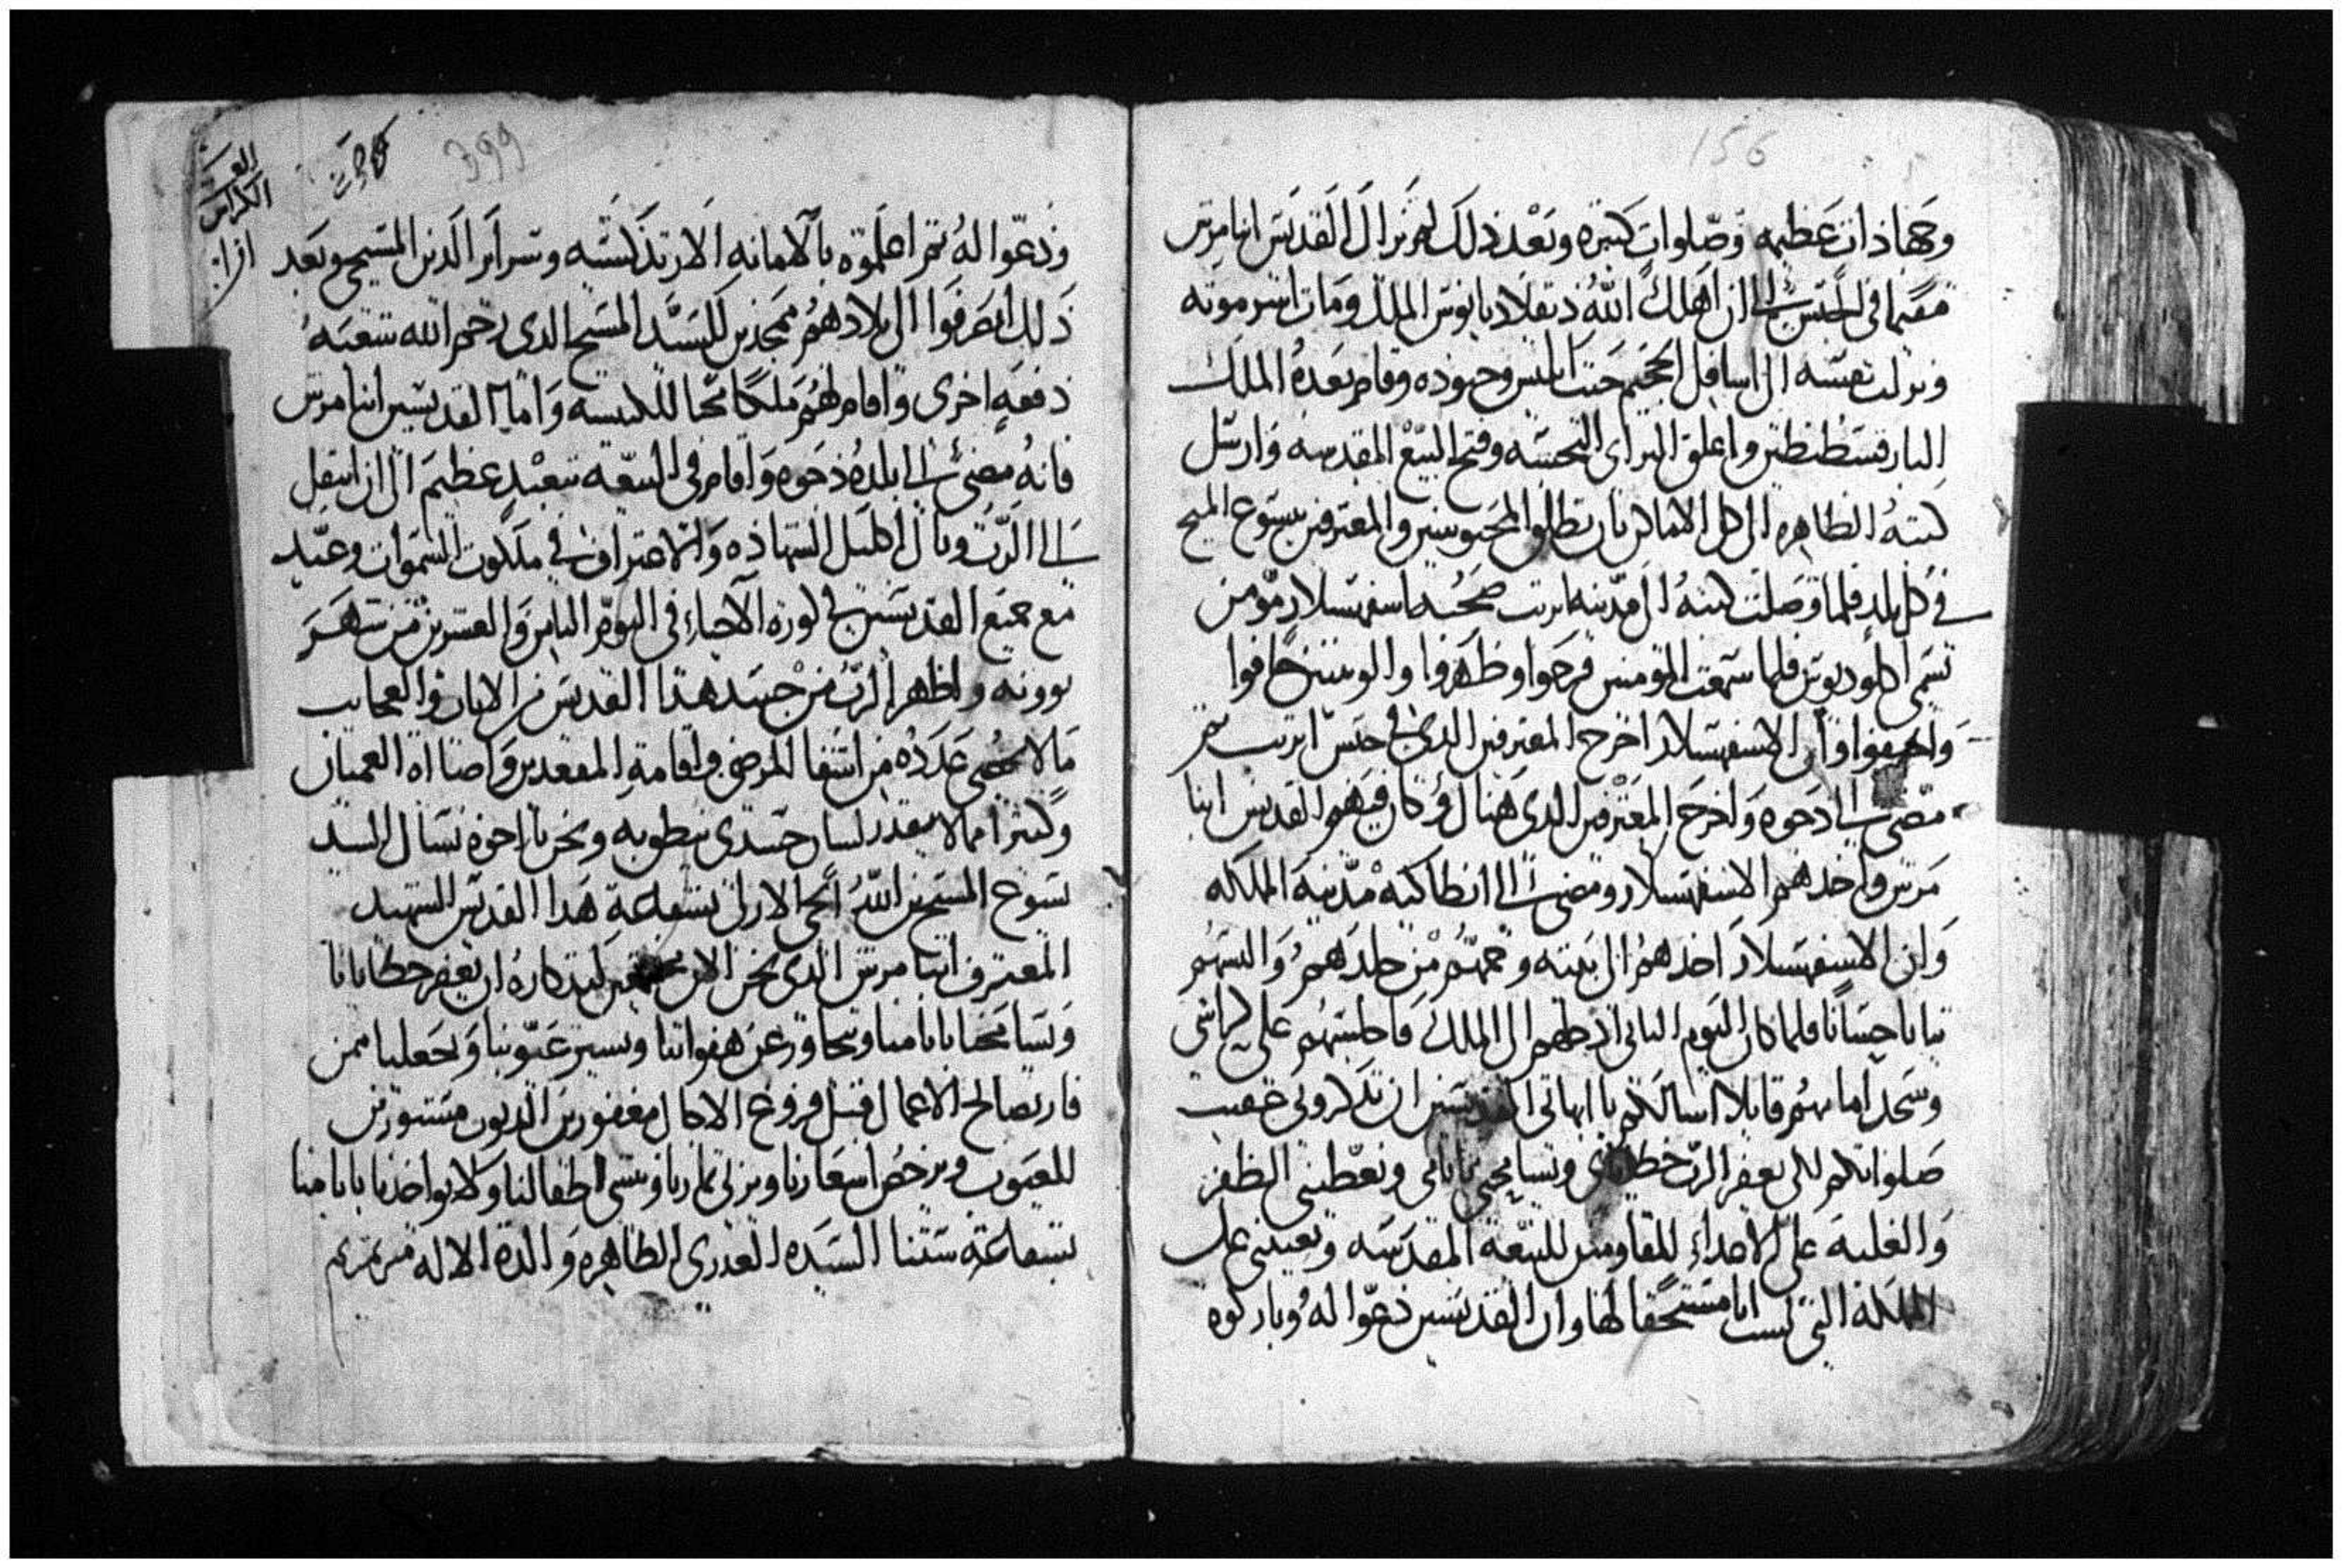 156
وجهاذات عظيمه وصلوات كتيره وبعد ذلك لم يزال القديس انبا مرتس
مقيما في الحبس الى ان اهلك الله دبقلاديانوس الملك ومات اشر موته
ونزلت نفسه الى اسافل الجحيم حيت ابليس وجنوده وقام بعده الملك
البار قسطنطين واغلق البرابي النجسه وفتح البيع المقدسه وارسل
كتبه الطاهره الى كل الاماكن بان يطلقوا المحبوسين والمعترفين بيسوع المسيح
في كل بلد فلما وصلت كتبه الى مدينه اتريب صحبه اسفهسلار مومن
تسمى اكلوديوس فلما سمعت المومنين فرحوا وظهروا والوتنيين خافوا
واختفوا وان الاسفهسلار اخرج المعترفين الدي في حبس اتريب تم
مضى الى دحوه واخرج المعترفين الدي هناك وكان فيهم القديس انبا
مرتس واخدهم الاسفهسلار ومضى الى انطاكيه مدينه المملكه
وان الاسفهسلار اخدهم الى بيته وحمهم من جلدهم والبسهم
تيابا حسانا فلما كان اليوم التاني ادخلهم الى الملك فاجلسهم على كراسي
وسجد امامهم قايلا اسالكم يا ابهاتي القديسين ان تدكروني ضعيف
صلواتكم لكي يغفر الرب خطاياي ويسامحني باتامي ويعطيني الظفر
والغلبه على الاعداء المقاومين للبيعه المقدسه ويعينني على
المملكه التي لست انا مستحقا لها وان القديسين دعوا له وباركوه
399
العـ
الكراس
ودعوا له تم اعلموه بالامانه الارتدكسيه وسراير الدين المسيحي وبعد
ذلك انصرفوا الى بلادهم ممجدين للسيد المسيح الدي رحم الله شعبه
دفعه اخرى واقام لهم ملكا محبا للكنيسه واما القديس انبا مرتس
فانه مضى الى بلده دحوه واقام في البيعه بتعبد عظيم الى ان انتقل
الى الرب ونال اكليل الشهاده والاعتراف في ملكوت السموات وعيد
مع جميع القديسين في كورة الاحياء في اليوم التامن والعشرين من شهر
بوونه واظهر الرب من جسد هذا القديس من الايات والعجايب
مالا يحصى عدده من اشفا المرضى واقامة المقعدين واضااه العميان
وكتيرا ممالا يقدر لسان جسدي ينطق به ونحن يا اخوه نسال السيد
يسوع المسيح ابن الله الحي الازلي بشفاعة هدا القديس الشهيد
المعترف انبا مرتس الدي نحن الان مجتمعين لتدكاره ان يغفر خطايانا
ويسامحنا باتامنا ويتجاوز عن هفواتنا ويستر عيوبنا ويجعلنا ممن
فاز بصالح الاعمال قبل فروغ الاجال مغفورين الديون مستورين
للعيوب ويرخص اسعارنا ويزكي تمارنا وينشي اطفالنا ولا يواخدنا باتامنا
بشفاعة ستنا السيده العدرى الطاهره والدة الاله مرتمريم